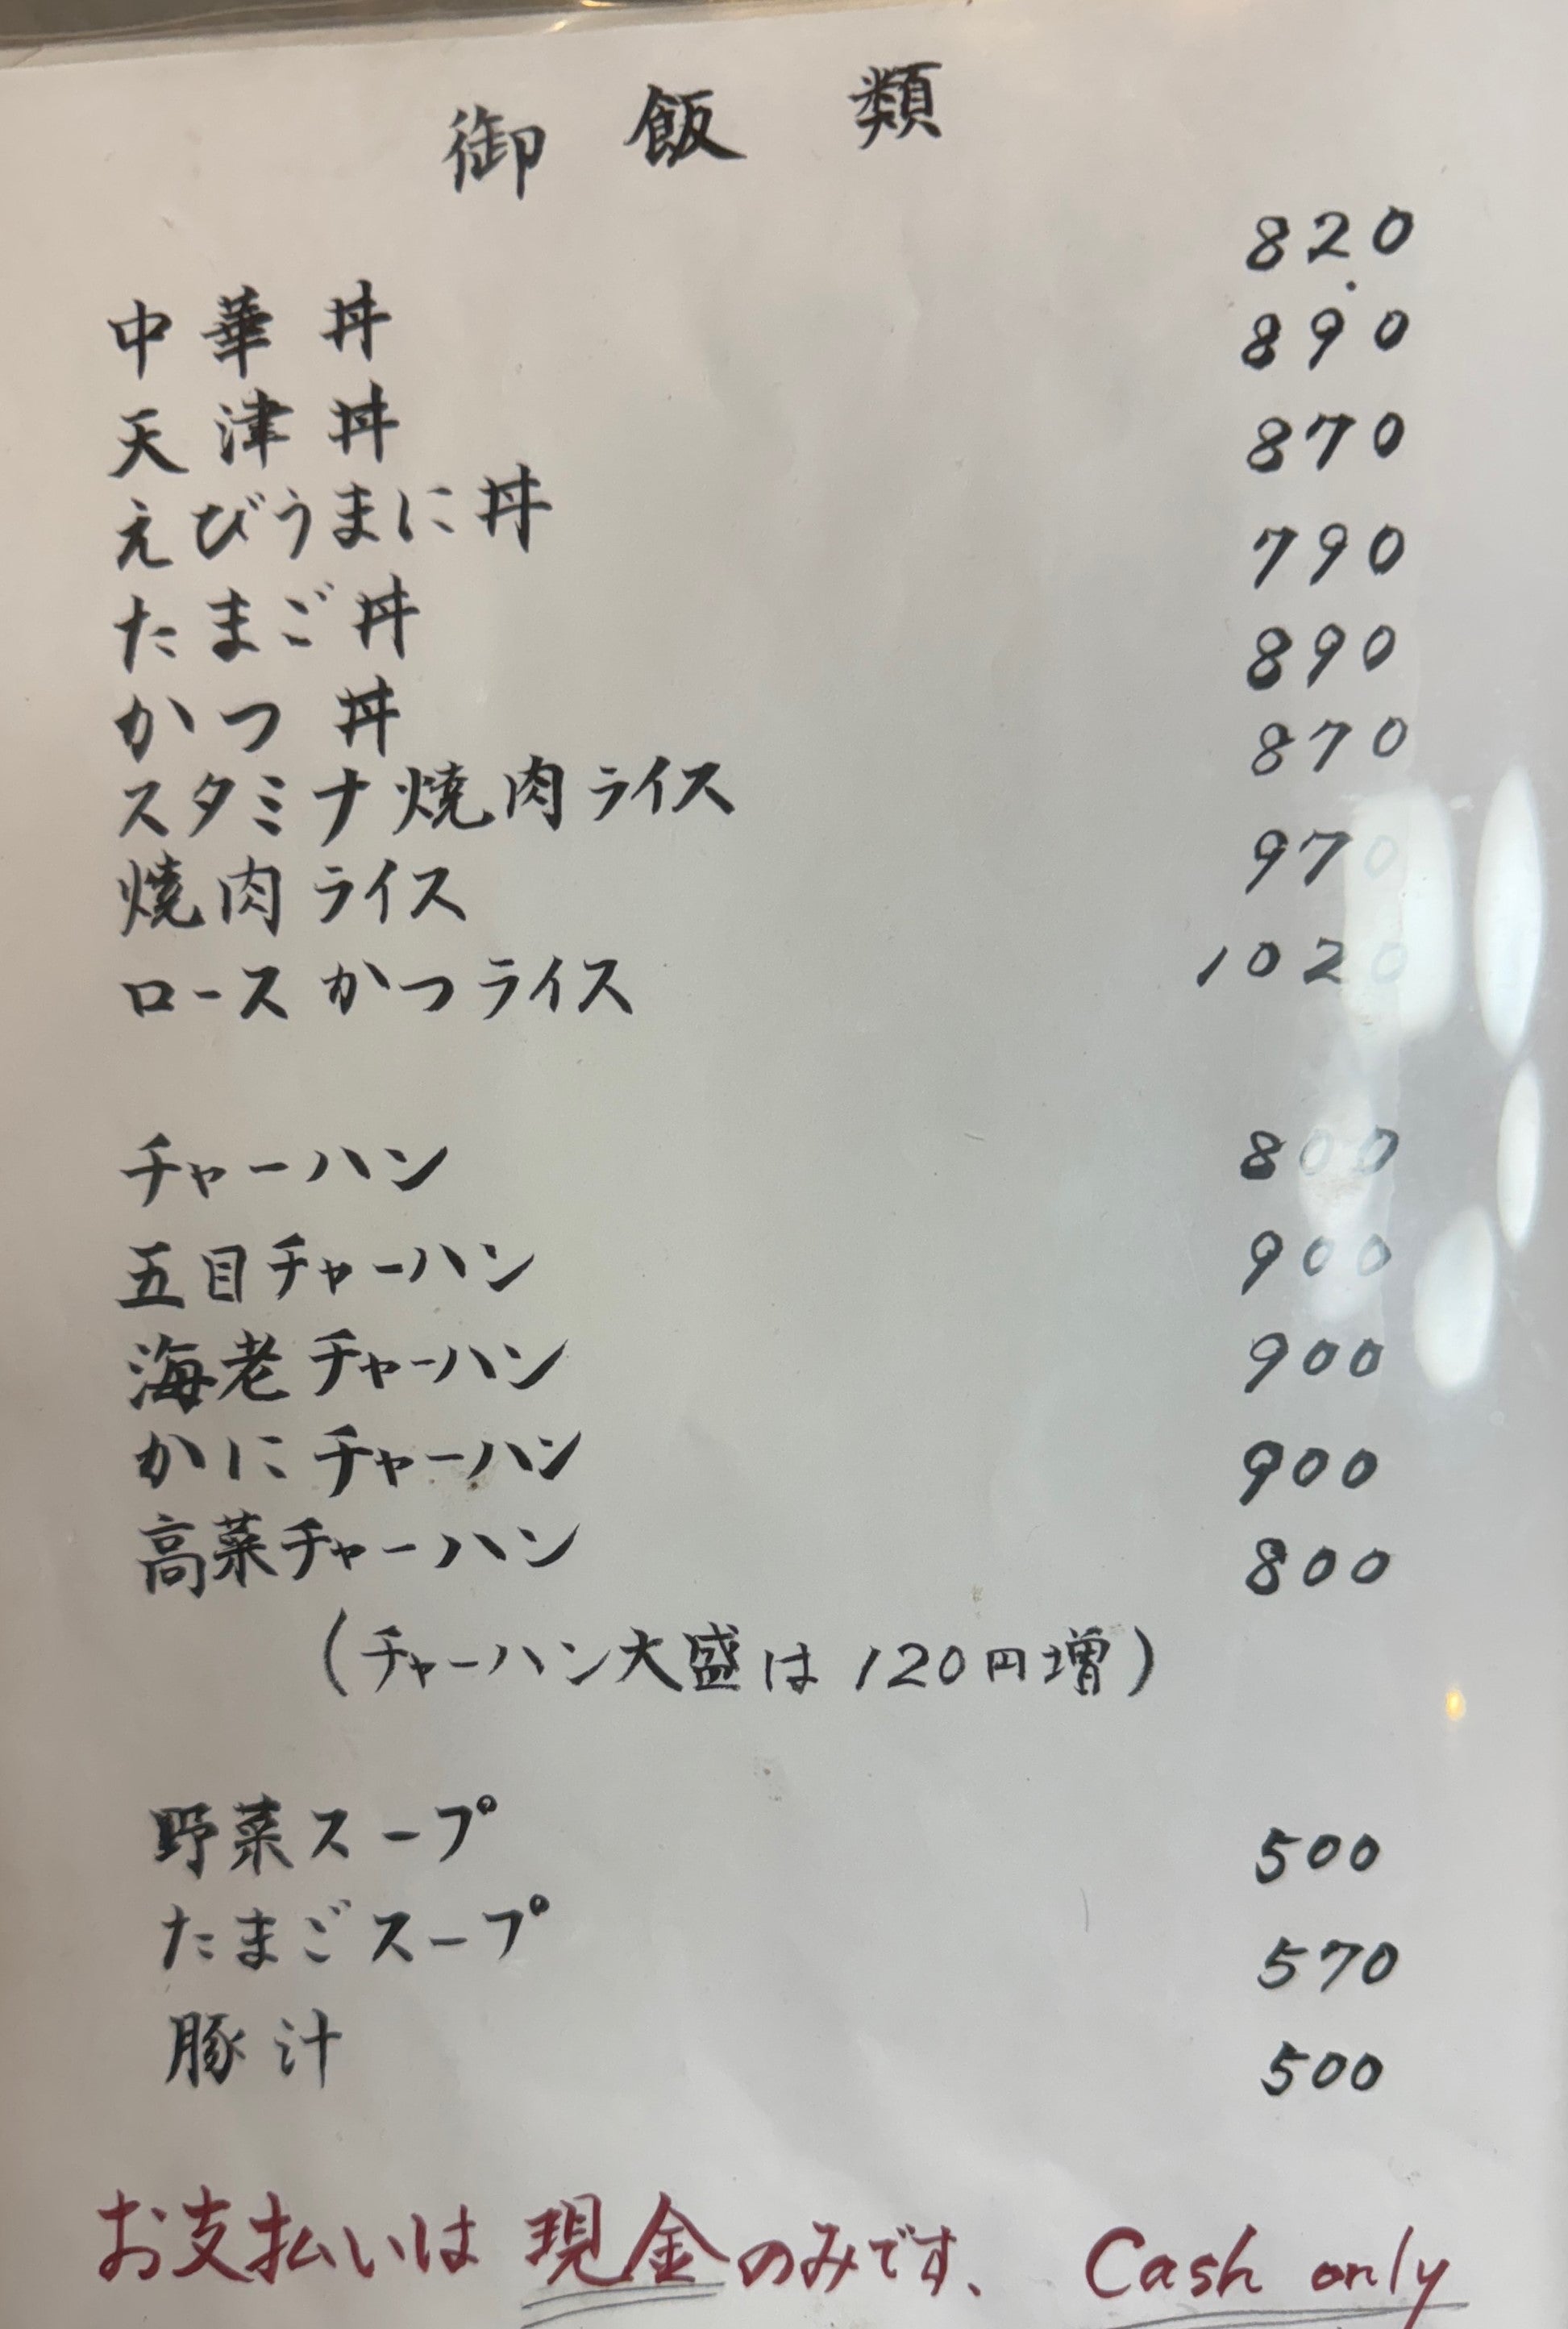 御飯類
中華丼 820
天津丼 890
えびうまに丼 870
たまご丼 790
かつ丼 890
スタミナ焼肉ライス 870
焼肉ライス 970
ロースかつライス 1020
チャーハン 800
五目チャーハン 900
海老チャーハン 900
かにチャーハン 900
高菜チャーハン 800
(チャーハン大盛は120円増)
野菜スープ 500
たまごスープ 570
豚汁 500
お支払いは現金のみです、 Cash only